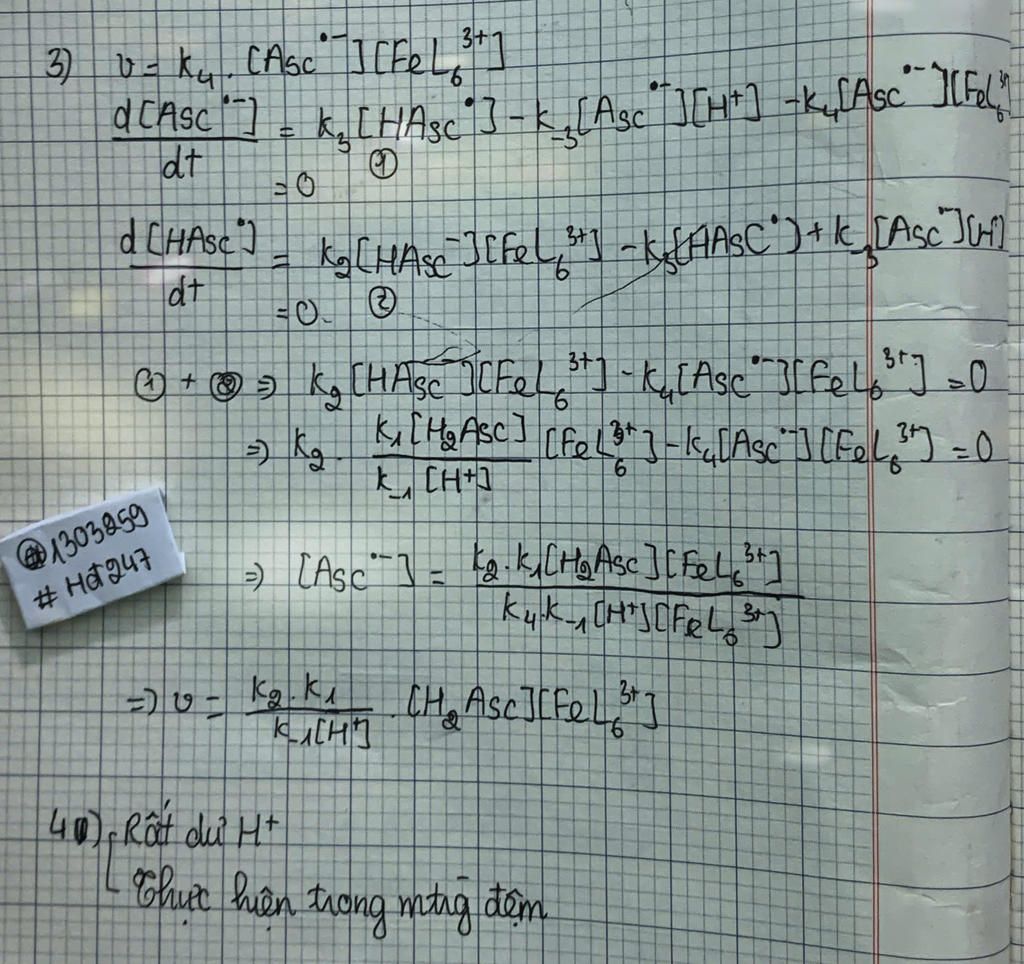 3) v = k₄ . [Asc•⁻][FeL₆³⁺]
d[Asc•⁻]/dt = k₃[HAsc•] - k₋₃[Asc•⁻][H⁺] - k₄[Asc•⁻][FeL₆³⁺]
= 0 ①
d[HAsc•]/dt = k₂[HAsc⁻][FeL₆³⁺] - k₃[HAsc•] + k₋₃[Asc•⁻][H⁺]
= 0. ②
① + ② ⇒ k₂[HAsc⁻][FeL₆³⁺] - k₄[Asc•⁻][FeL₆³⁺] = 0
⇒ k₂ . k₁[H₂Asc]/k₋₁[H⁺] [FeL₆³⁺] - k₄[Asc•⁻][FeL₆³⁺] = 0
@1303259
# Hđ247
⇒ [Asc•⁻] = k₂.k₁[H₂Asc][FeL₆³⁺]/k₄.k₋₁[H⁺][FeL₆³⁺]
⇒ v = k₂.k₁/k₋₁[H⁺] . [H₂Asc][FeL₆³⁺]
4) Rất dư H⁺
Thực hiện trong mtrg đệm